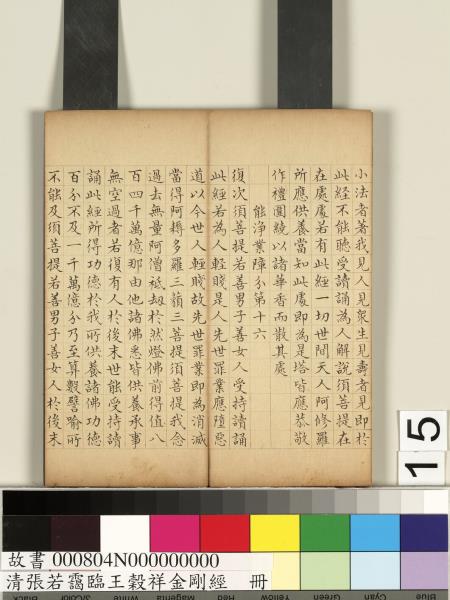 小法者著我見人見衆生見壽者見即於
此經不能聽受讀誦為人解說須菩提在
在處處若有此經一切世間天人阿修羅
所應供養當知此處即為是塔皆應恭敬
作禮圍繞以諸華香而散其處
能淨業障分第十六
復次須菩提若善男子善女人受持讀誦
此經若為人輕賤是人先世罪業應墮惡
道以今世人輕賤故先世罪業即為消滅
當得阿耨多羅三藐三菩提須菩提我念
過去無量阿僧祇劫於然燈佛前得值八
百四千萬億那由他諸佛悉皆供養承事
無空過者若復有人於後末世能受持讀
誦此經所得功德於我所供養諸佛功德
百分不及一千萬億分乃至算數譬喻所
不能及須菩提若善男子善女人於後末
15
故書 000804N000000000
清張若靄臨王穀祥金剛經 冊
Black 3/Color White Magenta Red Yellow Green Cyan Blue